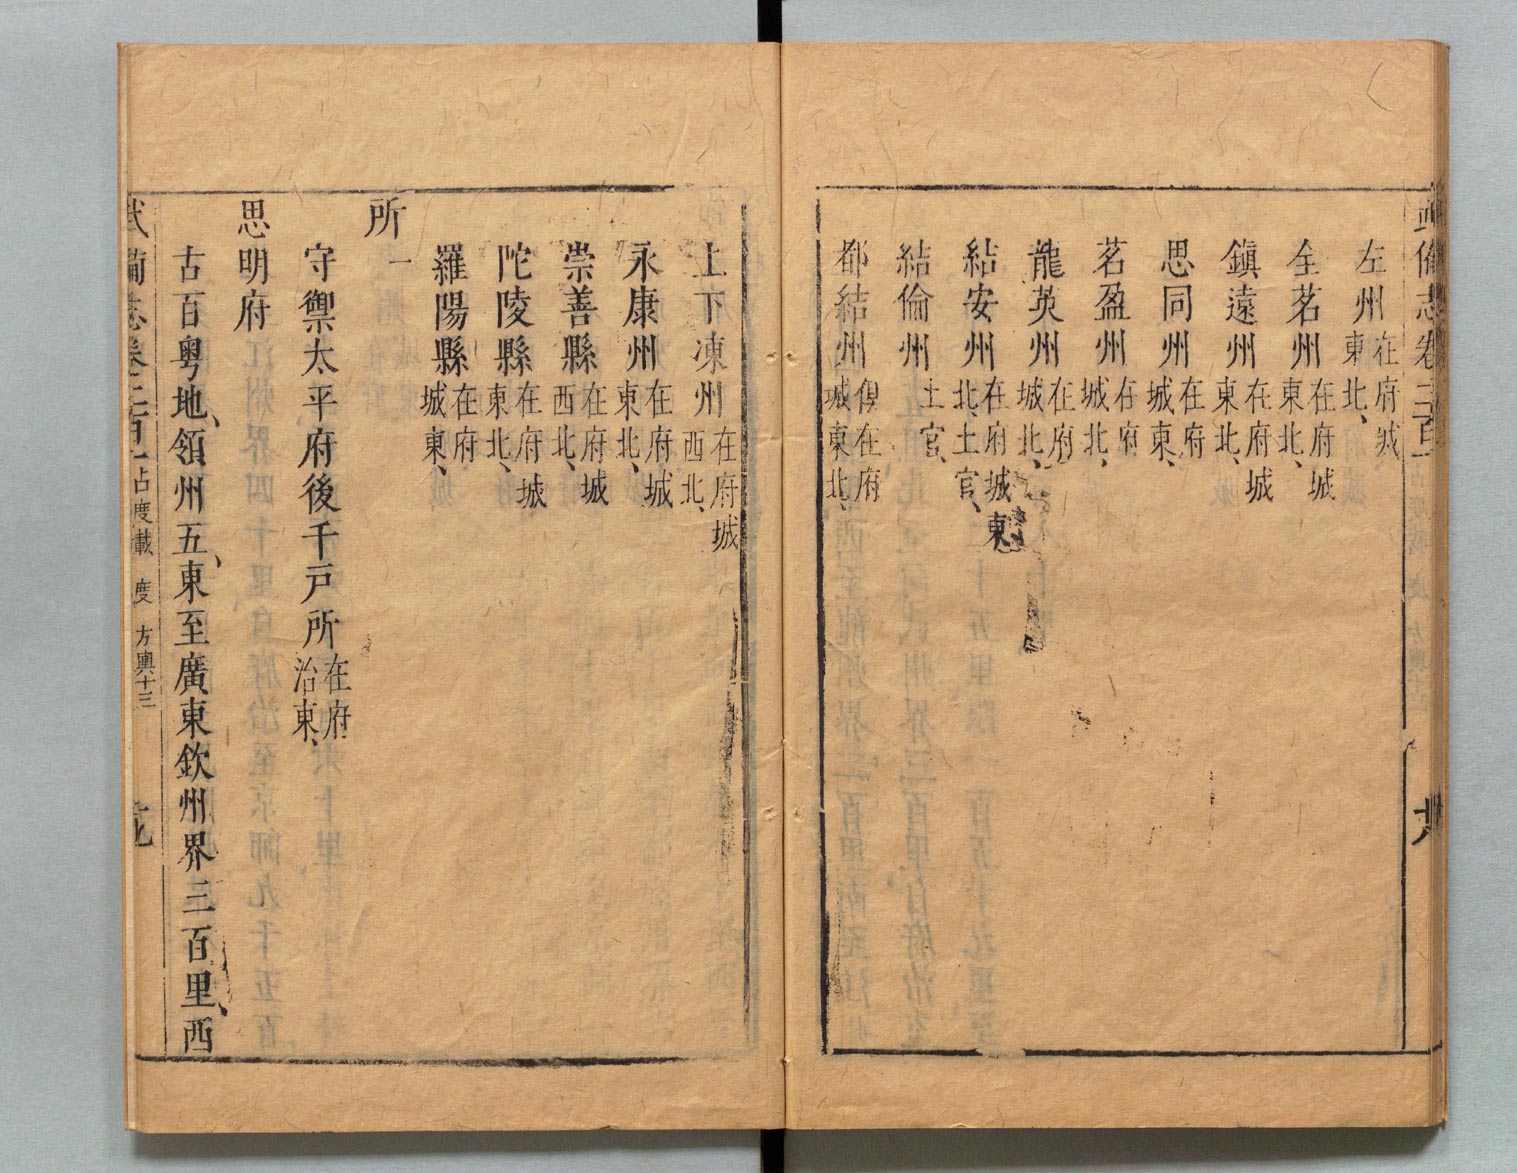 左州在府城東北、
全茗州在府城東北、
鎮遠州在府城東北、
思同州在府城東、
茗盈州在府城北、
龍英州在府城北、
結安州在府城東北、土官、
結倫州土官、
都結州俱在府城東北、
上下凍州在府城西北、
永康州在府城東北、
崇善縣在府城西北、
陀陵縣在府城東北、
羅陽縣在府城東、
所一
守禦太平府後千戶所在府治東、
思明府
古百粤地、領州五、東至廣東欽州界三百里、西
武備志卷 占度載 度 方輿十三